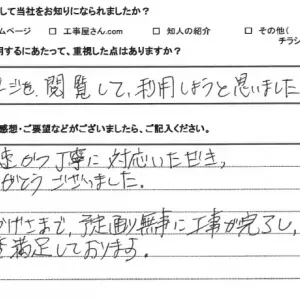 して当社をお知りになられましたか？
ムページ □ 工事屋さん.com □ 知人の紹介 □ その他(
チラシ
用するにあたって、重視した点はありますか？
ージを、閲覧して、利用しようと思いました
感想・ご要望などがございましたら、ご記入ください。
速かつ丁寧に対応いただき、
がとうございました。
かげさまで、予定通り無事に工事が完了し、
満足しております。